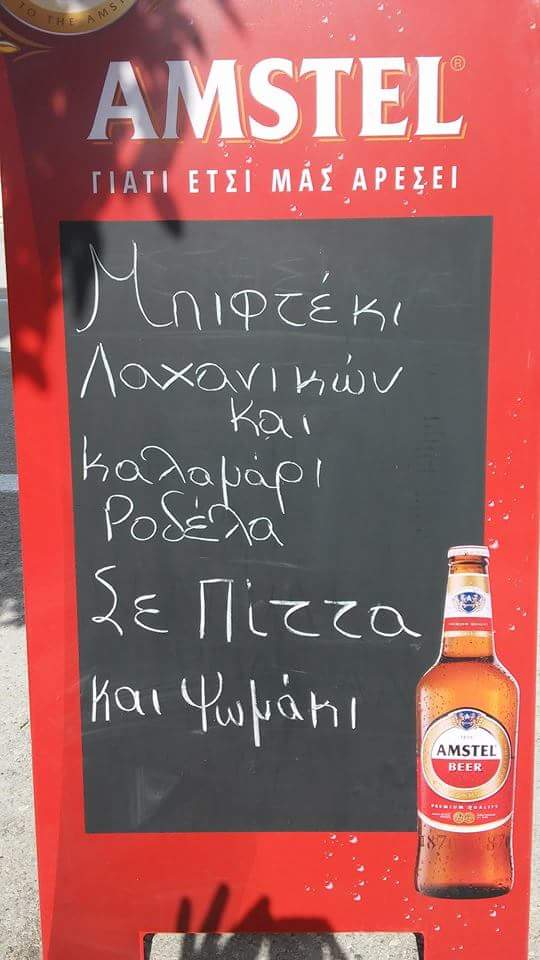 TO THE AMST
AMSTEL®
ΓΙΑΤΙ ΕΤΣΙ ΜΑΣ ΑΡΕΣΕΙ
Μπιφτέκι
Λαχανικών
και
καλαμάρι
Ροδέλα
Σε Πίττα
και ψωμάκι
AMSTEL
BEER
PREMIUM QUALITY